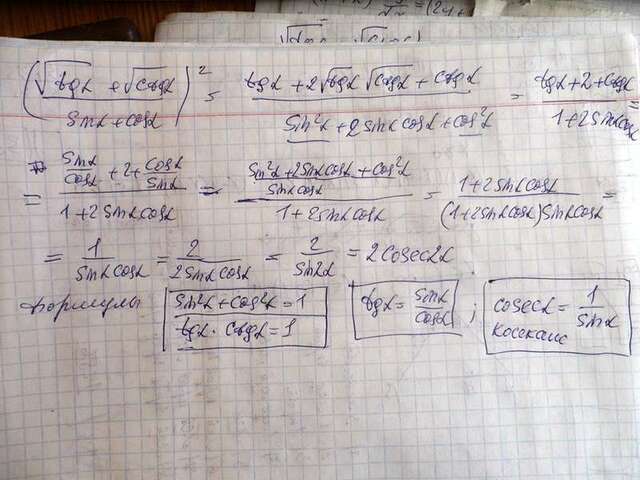 (√tgα + √ctgα / sinα + cosα)² = tgα + 2√tgα √ctgα + ctgα / sin²α + 2sinα cosα + cos²α = tgα + 2 + ctgα / 1 + 2sinα cosα =
= sinα/cosα + 2 + cosα/sinα / 1 + 2sinα cosα = sin²α + 2sinα cosα + cos²α / sinα cosα / 1 + 2sinα cosα = 1 + 2sinα cosα / (1 + 2sinα cosα) sinα cosα =
= 1 / sinα cosα = 2 / 2sinα cosα = 2 / sin2α = 2cosec2α
формулы sin²α + cos²α = 1 tgα = sinα / cosα ; cosecα = 1 / sinα
tgα · ctgα = 1 косеканс